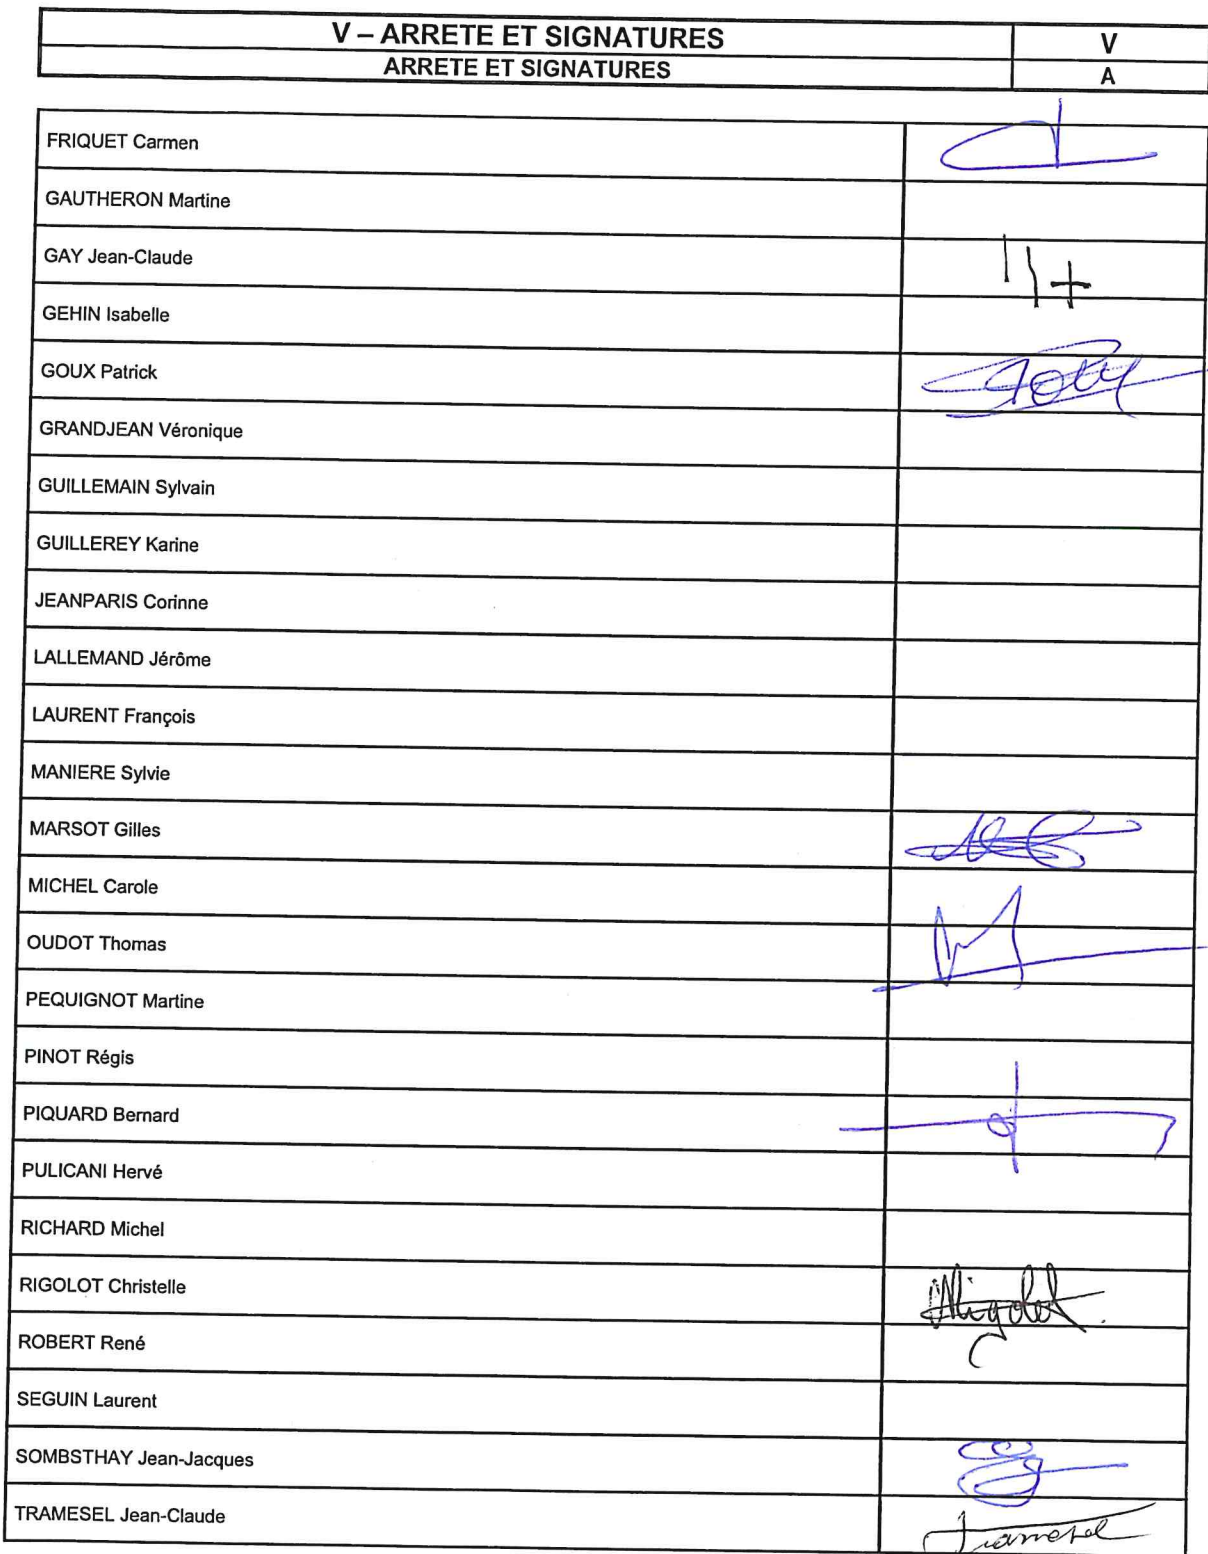 V – ARRETE ET SIGNATURES V
ARRETE ET SIGNATURES A
FRIQUET Carmen
GAUTHERON Martine
GAY Jean-Claude
GEHIN Isabelle
GOUX Patrick
GRANDJEAN Véronique
GUILLEMAIN Sylvain
GUILLEREY Karine
JEANPARIS Corinne
LALLEMAND Jérôme
LAURENT François
MANIERE Sylvie
MARSOT Gilles
MICHEL Carole
OUDOT Thomas
PEQUIGNOT Martine
PINOT Régis
PIQUARD Bernard
PULICANI Hervé
RICHARD Michel
RIGOLOT Christelle
ROBERT René
SEGUIN Laurent
SOMBSTHAY Jean-Jacques
TRAMESEL Jean-Claude Tramesel